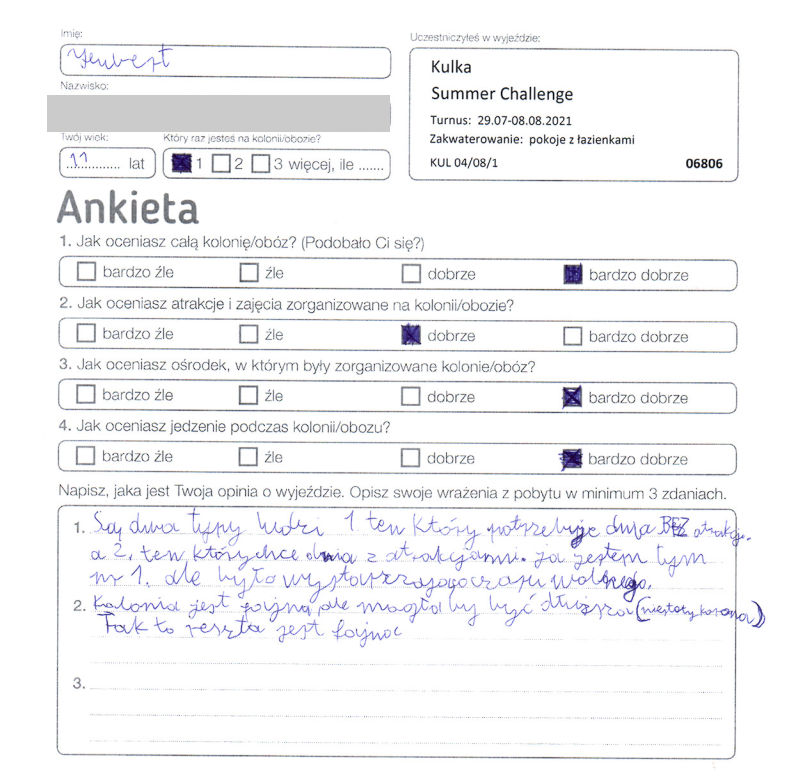 Imię:
Uczestniczyłeś w wyjeździe:
Hubert
Kulka
Summer Challenge
Turnus: 29.07-08.08.2021
Zakwaterowanie: pokoje z łazienkami
KUL 04/08/1 06806
Nazwisko:
Twój wiek:
11 lat
Który raz jesteś na kolonii/obozie?
1 2 3 więcej, ile .......
Ankieta
1. Jak oceniasz całą kolonię/obóz? (Podobało Ci się?)
bardzo źle źle dobrze bardzo dobrze
2. Jak oceniasz atrakcje i zajęcia zorganizowane na kolonii/obozie?
bardzo źle źle dobrze bardzo dobrze
3. Jak oceniasz ośrodek, w którym były zorganizowane kolonie/obóz?
bardzo źle źle dobrze bardzo dobrze
4. Jak oceniasz jedzenie podczas kolonii/obozu?
bardzo źle źle dobrze bardzo dobrze
Napisz, jaka jest Twoja opinia o wyjeździe. Opisz swoje wrażenia z pobytu w minimum 3 zdaniach.
1. Są dwa typy ludzi 1 ten który potrzebuje dnia BEZ atrakcji.
a 2. ten który chce dnia z atrakcjami. Ja jestem tym
nr 1. ale było wystarczająco czasu wolnego.
2. Kolonia jest fajna, ale mogła by być dłuższa (niestety korona)
Tak to reszta jest fajna
3.